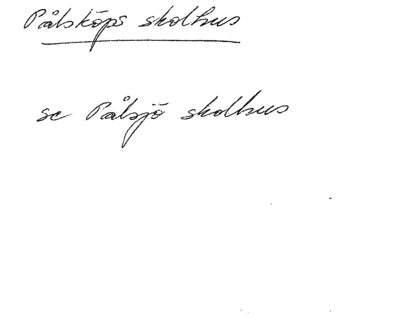 Pålsköps skolhus
se Pålsjö skolhus